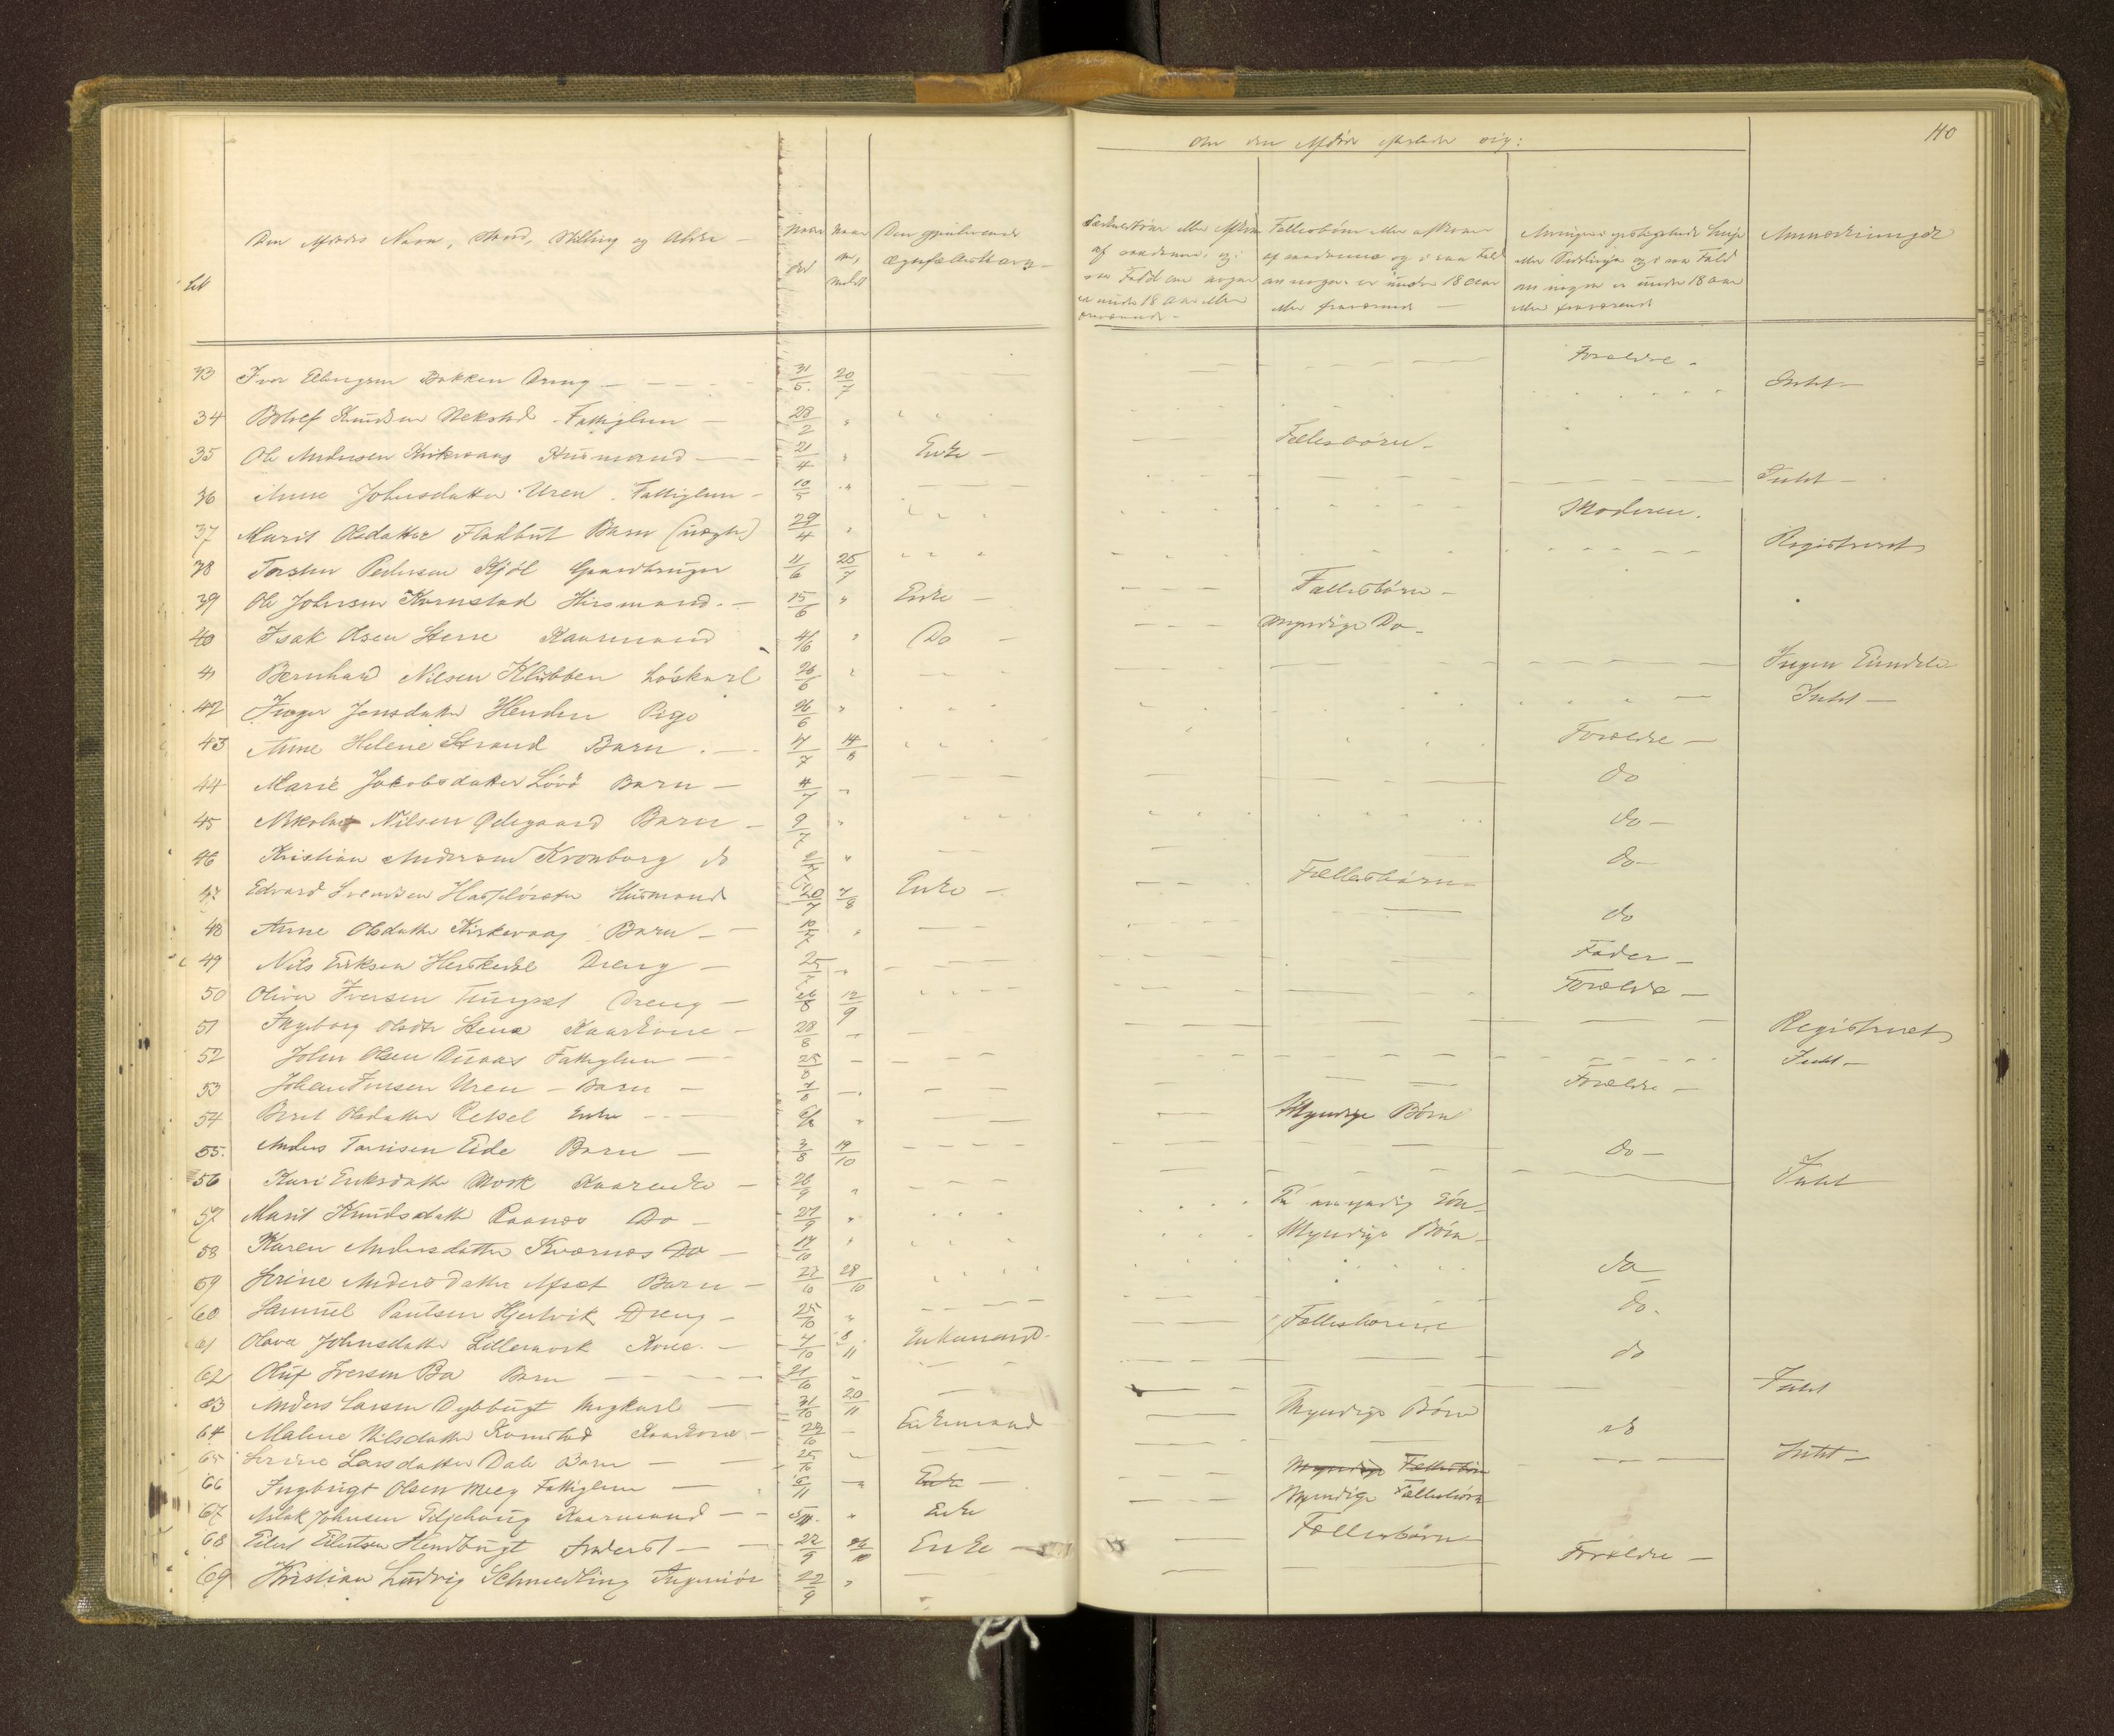 Om den Afdøde efterlader sig: 40
No
Den Afdødes Navn, Stand, Stilling og Alder —
Naar død
Naar anmeldt
Den gjenlevende Ægtefælles Navn —
Særkuldsbørn eller Afkom
af saadanne, og i
saa Fald om nogen
er under 18 Aar eller
fraværende —
Fællesbørn eller afkom
af saadanne og i saa Fald
om nogen er under 18 Aar
eller fraværende —
Arvinger i opstigende Linje
eller Sidelinje og i saa Fald
om nogen er under 18 Aar
eller fraværende
Anmærkninger
33 Iver Bakken Dreng — 31/5 20/7 Forældre —
34 Knudsen Fattiglem — 28/2 " Intet —
35 Ole Andersen Kirkevaag Husmand — 21/4 " Enke — Fællesbørn —
36 Anne Johnsdatter Uren Fattiglem — 10/5 " Intet —
37 Marit Olsdatter Barn (uægte) 29/4 " Moderen.
38 Torsten Pedersen Kjøl Gaardbruger 11/6 25/7 Registreret
39 Ole Johnsen Kornstad Husmand — 15/6 " Enke — Fællesbørn —
40 Isak Olsen Stene Kaarmand 4/6 " Do — Myndige Do —
41 Bernhard Nilsen Klubben Løskarl 26/6 " Ingen Eiendele
42 Inger Jensdatter Henden Pige 26/6 " Intet —
43 Anne Helene Strand Barn — 4/7 14/8 Forældre —
44 Marie Jakobsdatter Barn — 4/7 — do
45 Nikolai Nilsen Ødegaard Barn — 9/7 " do —
46 Kristian Andersen Kronborg do " do —
47 Edvard Svendsen Husmand 20/7 7/8 Enke — Fællesbørn —
48 Anne Olsdatter Kirkevaag Barn — " do
49 Nils Eriksen Dreng — 25/7 — Fader —
50 Oliver Iversen Dreng — 26/8 12/9 Forældre —
51 Ingeborg Olsdtr Stene Kaarkone — 28/8 — Registreret
52 John Olsen Fattiglem — 25/8 — Intet —
53 Johan Uren — Barn — — Forældre —
54 Beret Olsdatter Enke — 6/8 " Myndige Børn
55. Anders Eide Barn — 3/8 19/10 do —
56 Kari Eriksdatter Mork Kaarenke — 26/9 " Intet
57 Marit Knudsdatter Raanes Do — 27/9 " En umyndig Søn —
58 Karen Andersdatter Kvernes Do — 17/10 " Myndige Børn —
59 Serine Andersdatter Barn — 22/10 28/10 do
60 Samuel Paulsen Hjertvik Dreng — 25/10 " do.
61 Olava Johnsdatter Lillemork Kone — 7/10 8/11 Enkemand — Fællesbørn
62 Oluf Iversen Bø Barn — 21/10 — do
63 Anders Larsen Dybbugt Ungkarl — 31/10 20/11 Intet
64 Malene Nilsdatter Kornstad Kaarkone — 28/10 — Enkemand Myndige Børn
65 Serine Larsdatter Dale Barn — 25/10 — do
66 Ingbrigt Olsen Meeg Fattiglem — 6/11 — Enke — Myndige Fællesbørn Intet —
67 Aslak Johnsen Kaarmand — 5/11 " Enke Myndige Fællesbørn
68 Eilert Eilertsen — 22/9 Enke — Fællesbørn
69 Kristian Ludvig Schmedling Ingeniør 22/9 " Forældre —